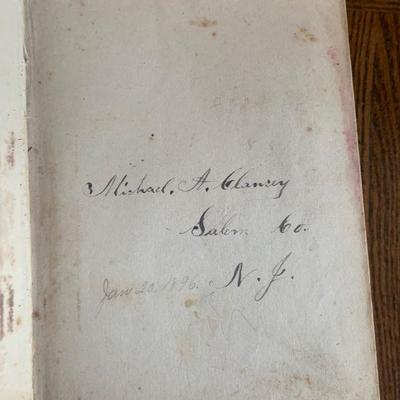 Michael. A. Clancy
Salem Co.
Jan 20. 1896. N. J.